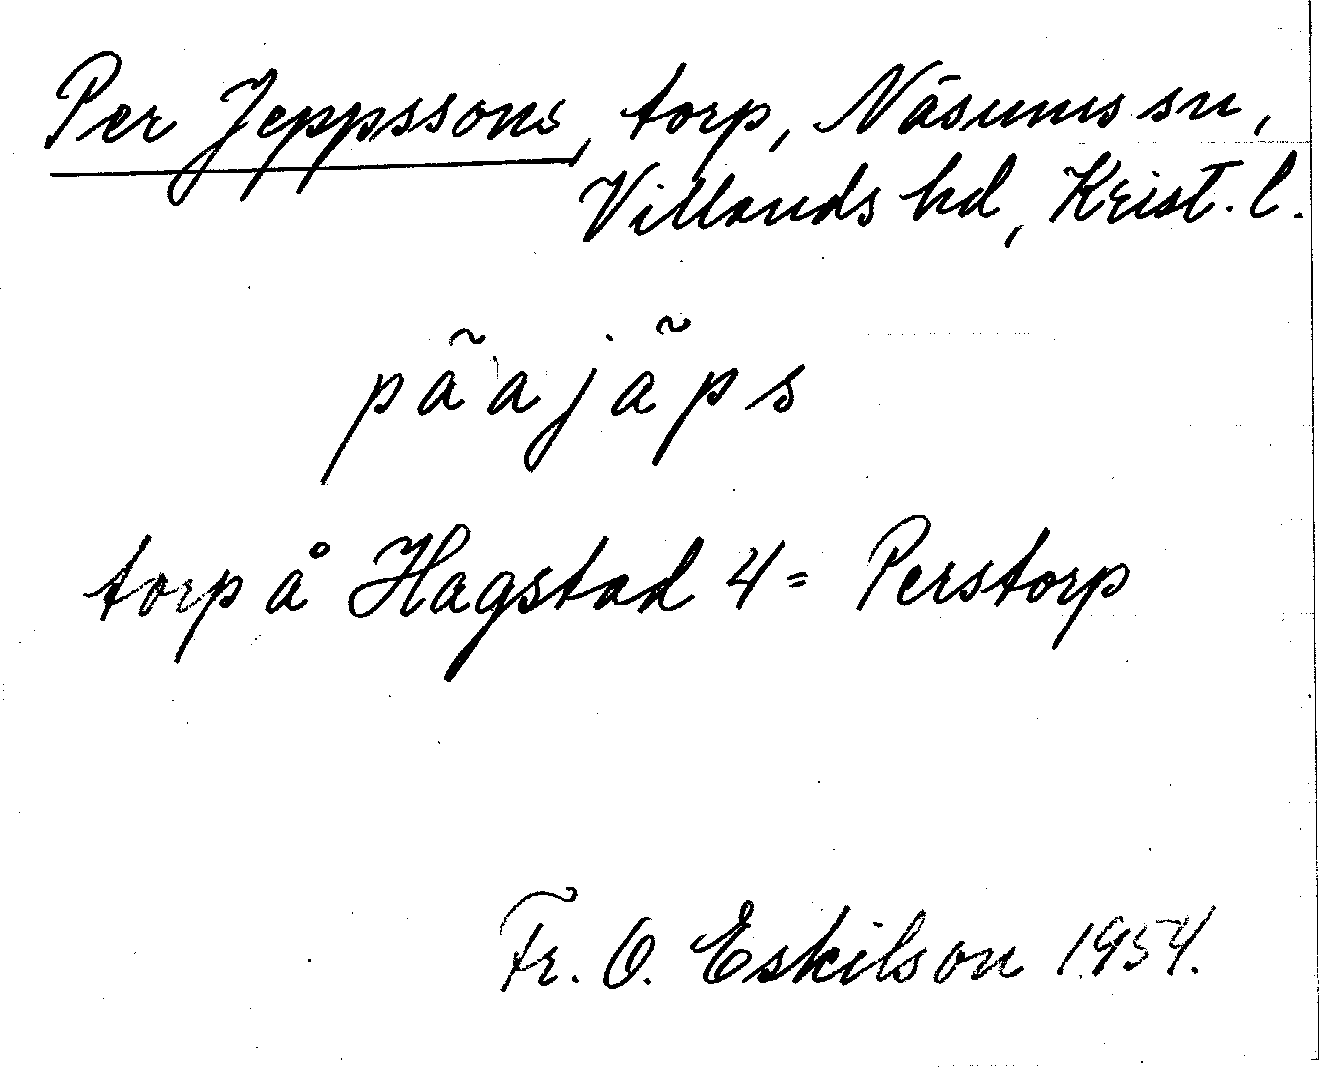 Per Jeppssons, torp, Näsums sn,
Villands hd, Krist. l.
pãajãps
torp å Hagstad 4 = Perstorp
Fr. O. Eskilson 1954.